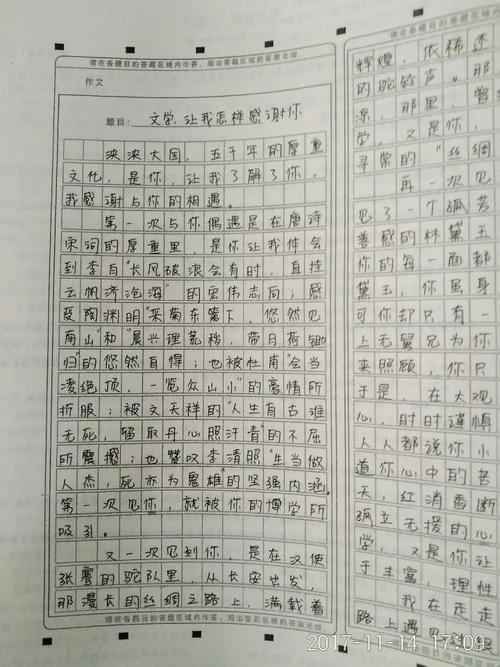 请在各题目的答题区域内作答,超出答题区域的答案无效。
作文
题目: 文学,让我怎样感谢你
泱泱大国,五千年的厚重
文化,是你,让我了解了你,
我感谢与你的相遇。
第一次与你偶遇是在唐诗
宋词的厚重里,是你让我体会
到李白"长风破浪会有时,直挂
云帆济沧海"的宏伟志向;感
受陶渊明"采菊东篱下,悠然见
南山"和"晨兴理荒秽,带月荷锄
归"的悠然自得;也被杜甫"会当
凌绝顶,一览众山小"的豪情所
折服;被文天祥的"人生自古谁
无死,留取丹心照汗青"的不屈
所震撼;也赞叹李清照"生当做
人杰,死亦为鬼雄"的坚强内涵。
第一次见你,就被你的博学所
吸引。
又一次见到你,是在汉使
张骞的驼队里,从长安出发,
那漫长的丝绸之路上,满载着
请在各题目的答题区域内作答,超出答题区域的答案无效
请在各题目的答题区
辉煌,依稀还
的驼铃声。那
凉,那里,曾
学,又是你,
寻常的"丝绸
再一次见
见了一个孤芳
善感的林黛玉
你的每一面都
黛玉,你虽身
可你却只有一
上无舅兄为你
来照顾,你只
于是 在大观
心,时时谨慎
人人都说你小
道你心中的苦
天,红消香断
孤立无援的心
学,又是你让
于丰富,理性
我在走走
路上遇见
2017-11-14 17:09